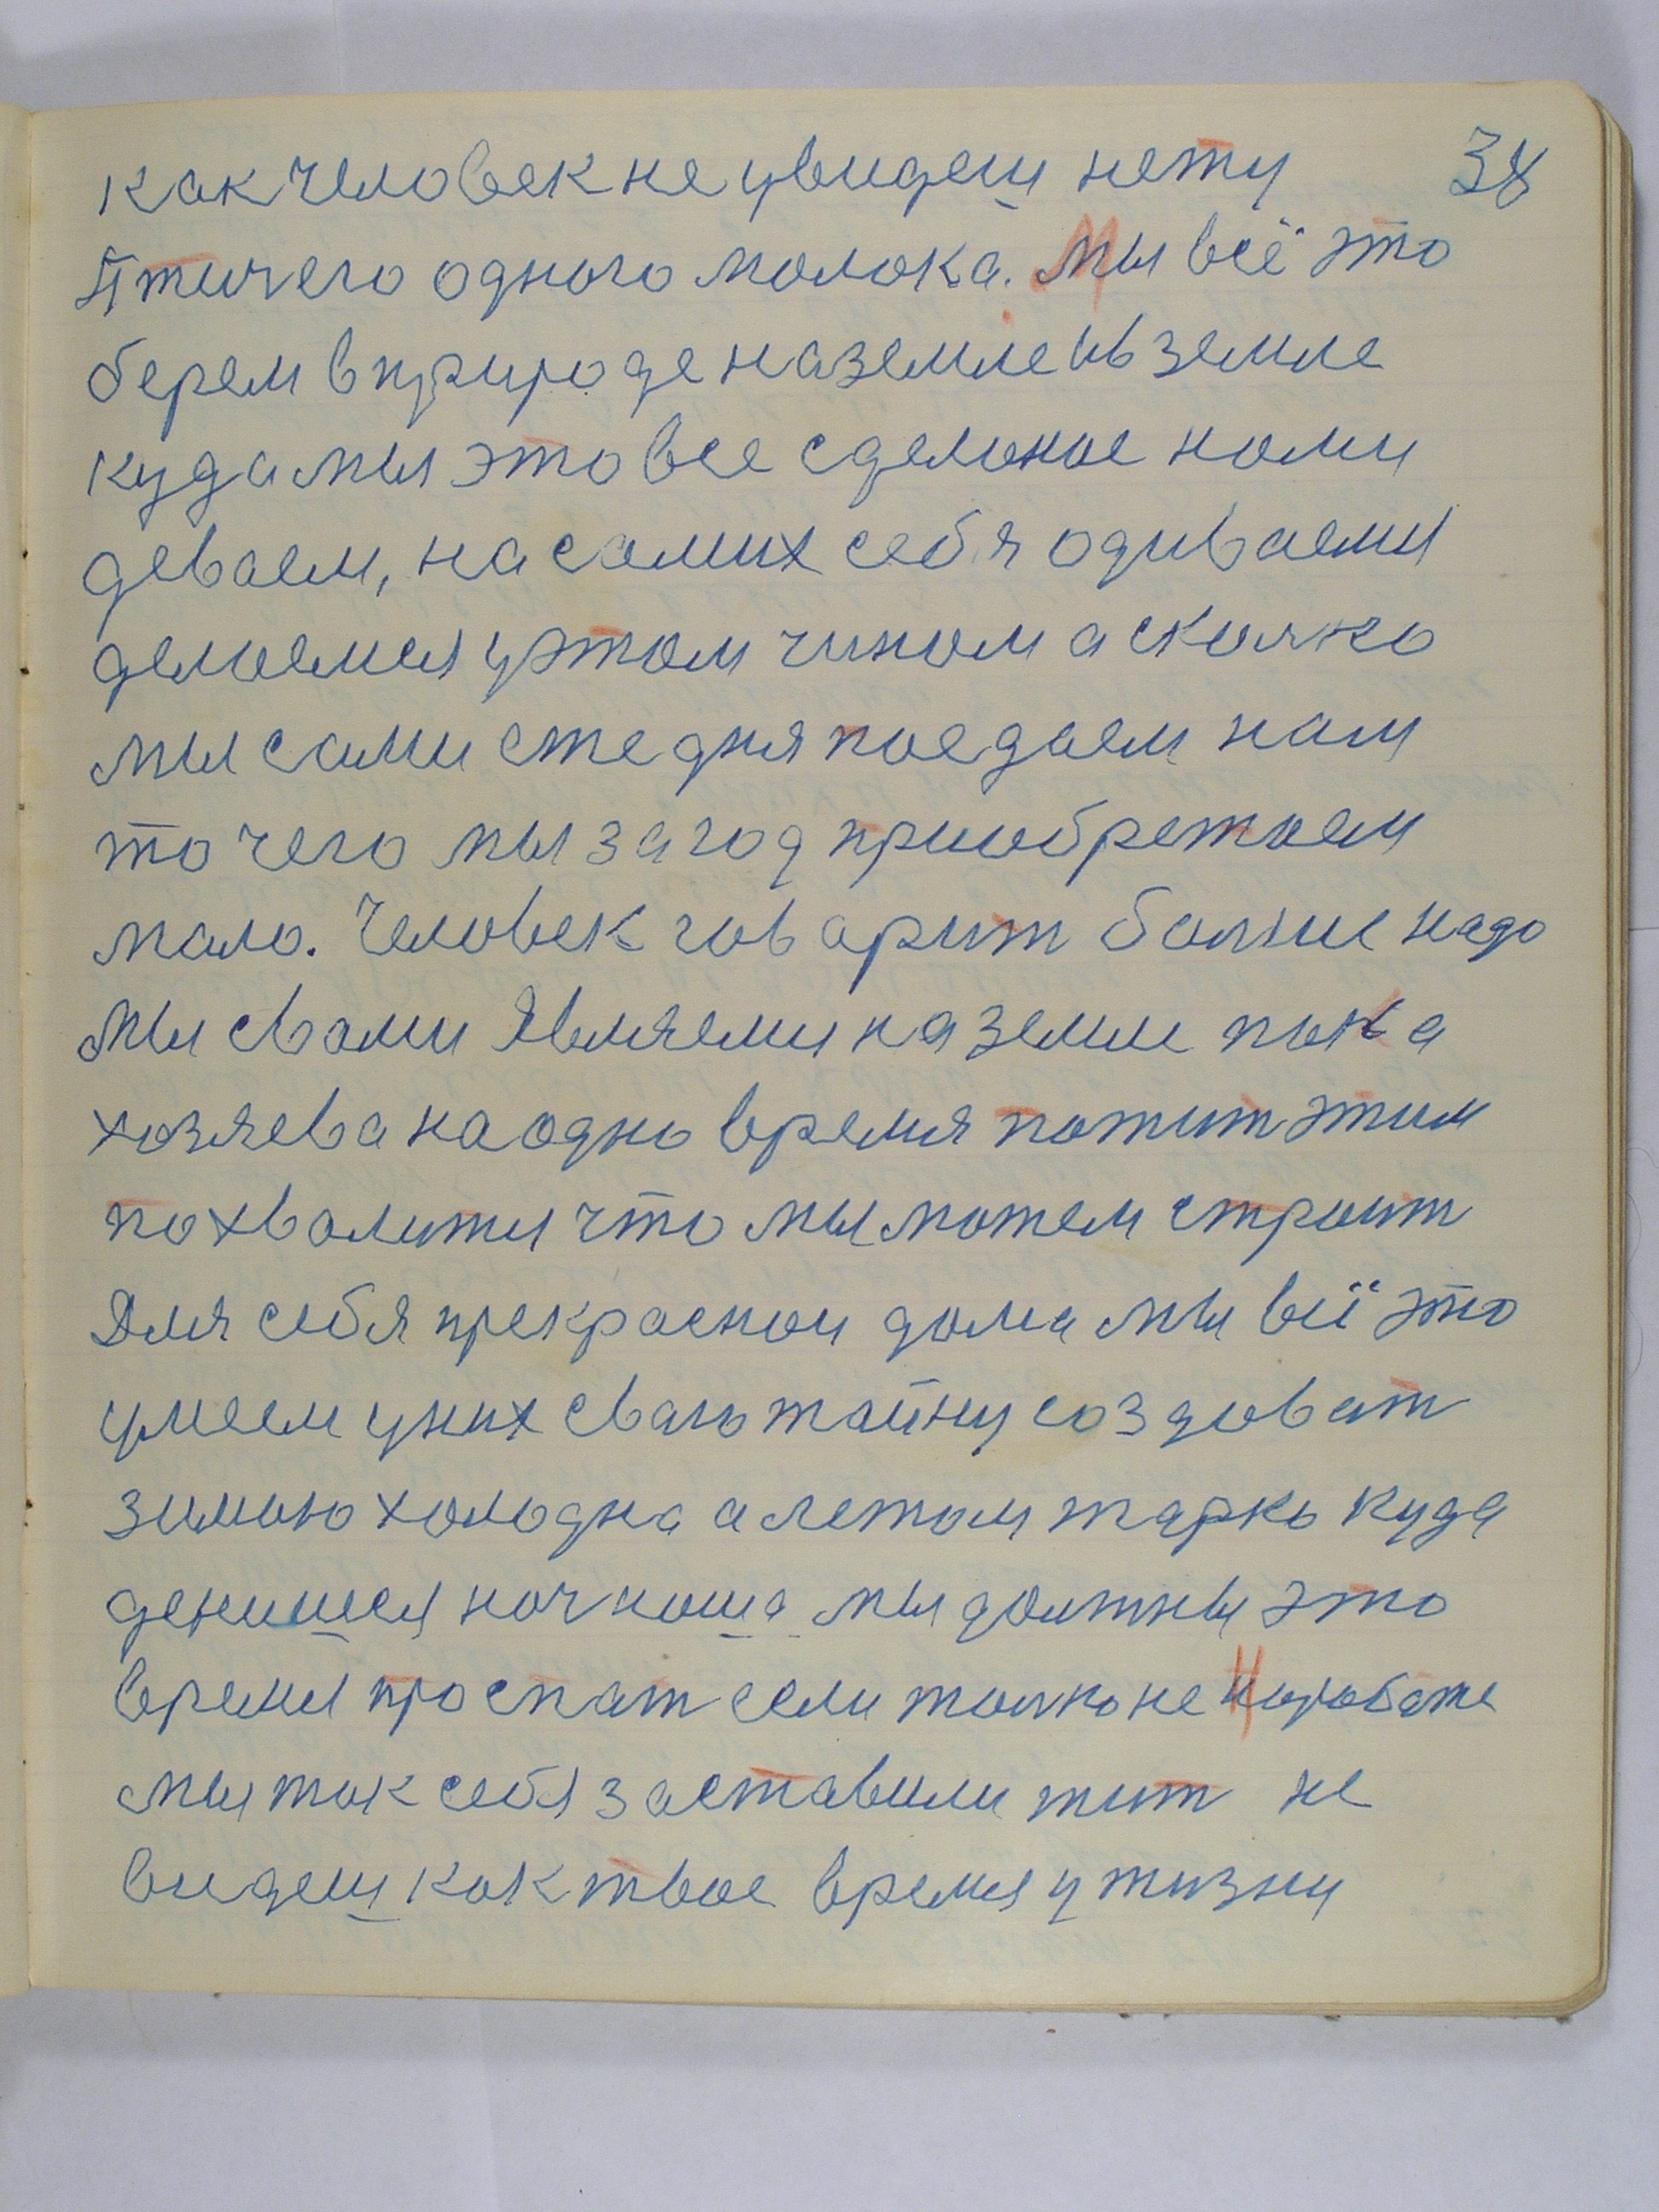 как человек не увидеш нету 38
Птичего одного молока. Мы всё это
берем в природе на земле ив земле
куда мы это все сделоноеноми
деваем, на самих себя одиваемы
делоемся у этом чином а сколко
мы сами сте дня поедаем нам
то чего мы за год приобретоем
мало. Человек говарит болше надо
мы свами Являемы на земле пока
хозяева на одно время пожит этим
похвалиты что мы можем строит
Для себя прекраснои дома мы всё это
умеем у них сваю тайну создоват
зимою холодна а летом жарко куда
денишся ноч ноша мы должны это
время проспат если толко не Наработе
мы так себя заставили жит не
видеш как твое время у жизны